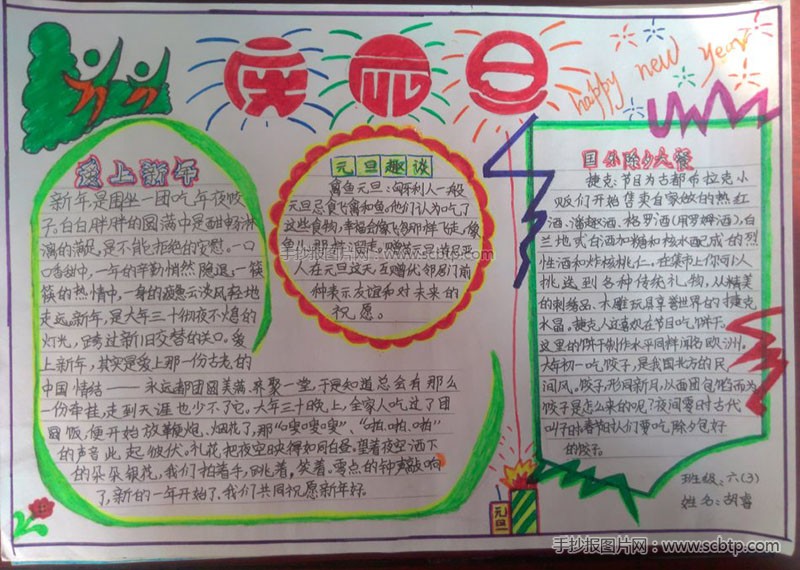 庆元旦
happy new year
爱上新年
新年,是围坐一团吃年夜饺
子。白白胖胖的圆满中是酣畅淋
漓的满足,是不能拒绝的安慰。一口
口香甜中,一年的辛勤悄然隐退;一筷
筷的热情中,一身的疲惫云淡风轻地
走远。新年,是大年三十彻夜不熄的
灯光,守夸过新旧交替的关口。爱
上新年,其实是爱上那一份古老的
中国情结——永远都团圆美满、齐聚一堂,于是知道总会有那么
一份牵挂,走到天涯也少不了它。大年三十晚上,全家人吃过了团
圆饭,便开始放鞭炮、烟花了,那“
的声音此起彼伏。礼花把夜空映得如同白昼。望着夜空洒下
的朵朵银花,我们拍着手,跳着,笑着。零点的钟声敲响
了,新的一年开始了。我们共同祝愿新年好。
元旦趣谈
禽鱼元旦:匈牙利人一般
元旦忌食飞禽和鱼。他们认为吃了
这些食物,幸福会像飞鸟那样飞走,像
鱼儿那样溜走。赠芽元旦:肯尼亚
人在元旦这天,互赠优邻居门前
种表示友谊和对未来的
祝愿。
国外除夕大餐
捷克:节目为古都布拉克,小
贩们开始售卖自家做的热红
酒、潘趣酒、格罗酒(用罗姆酒)、白
兰地或白酒加糖和核水配成的烈
性酒和炸核桃仁。在集市上你可以
挑选到各种传统礼物,从精美
的刺绣品、木雕玩具享誉世界的捷克
水晶。捷克人还喜欢在节日吃饼干。
这里的饼干制作水平同样闻名欧洲。
大年初一吃饺子,是我国北方的民
间风。饺子,形同新月,从面团包馅而为
饺子是怎么来的呢?夜间零时古代
叫子时。春节时人们要吃除夕包好
的饺子。
元旦
班级:六(3)
姓名:胡睿
手抄报图片网:www.scbtp.com
手抄报图片网:www.scbtp.com